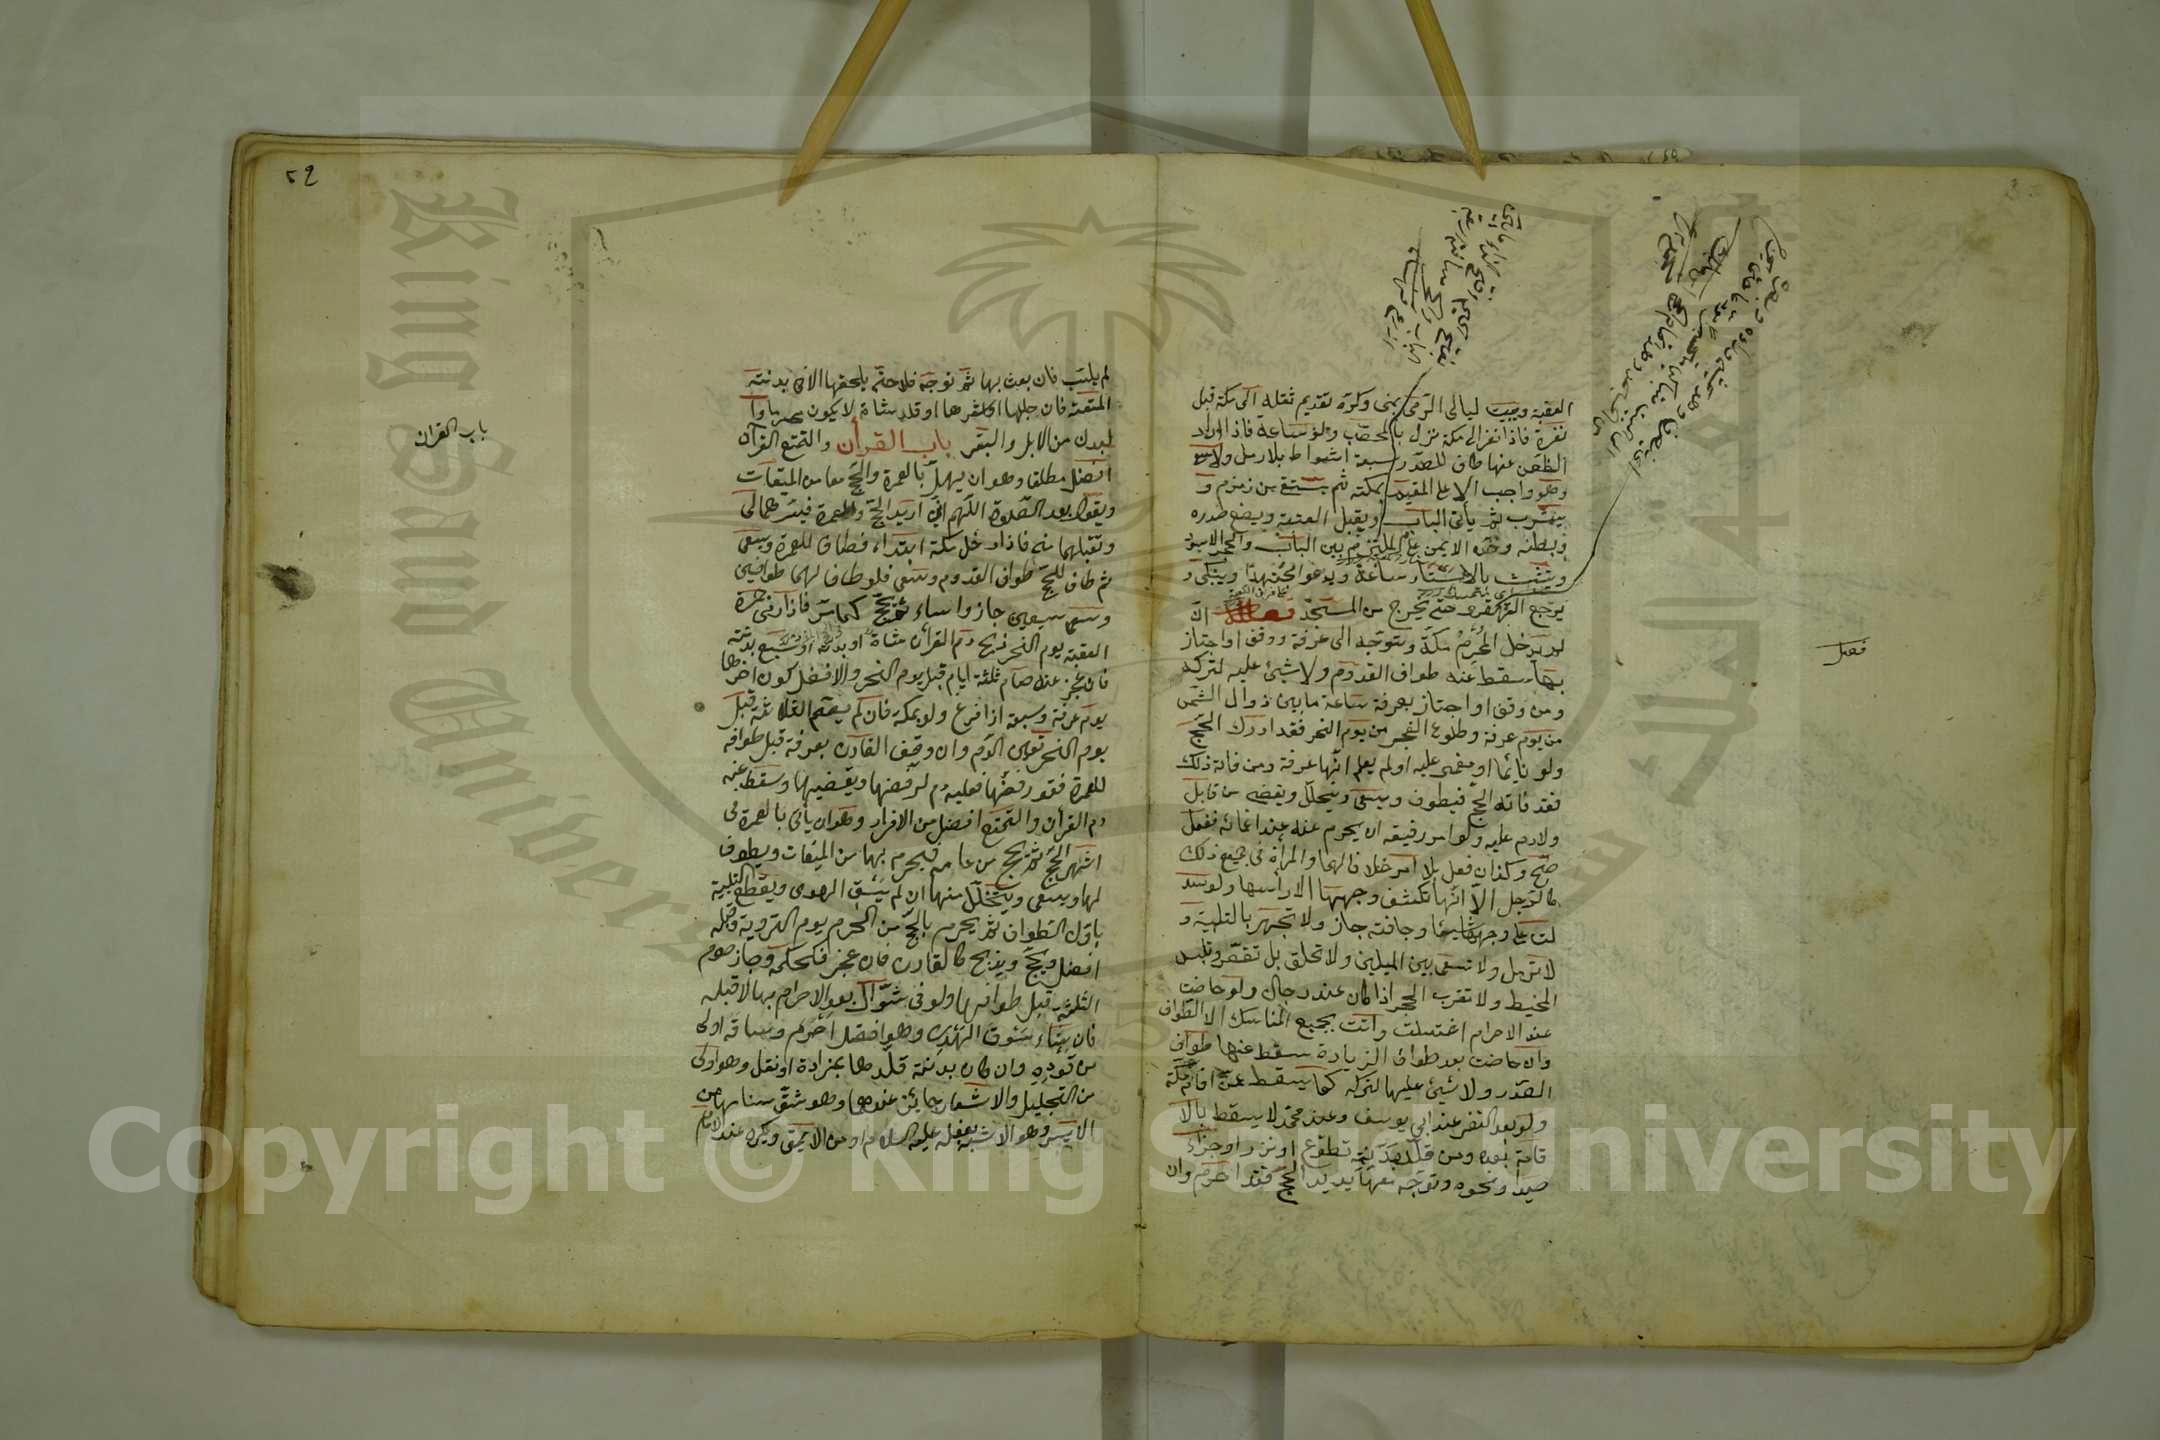 العقبة ويبيت ليالي الرمي بمنى وكره تقديم ثقله الى مكة قبل
نفره فاذا نفر الى مكة نزل بالمحصب ولو ساعة فاذا اراد
الظعن عنها طاف للصدر سبعة اشواط بلا رمل ولا سعى
وهو واجب الا على المقيم بمكة ثم يستقى من زمزم و
يشرب ثم يأتى الباب ويقبل العتبة ويضع صدره
وبطنه وخده الايمن على الملتزم بين الباب والحجر الاسود
ويتشبث بالاستار ساعة ويدعو مجتهدا ويبكى و
يرجع القهقرى حتى يخرج من المسجد فصل ان
لم يدخل المحرم مكة وتوجه الى عرفة ووقف او اجتاز
بها سقط عنه طواف القدوم ولا شيئ عليه لتركه
ومن وقف او اجتاز بعرفة ساعة ما بين زوال الشمس
من يوم عرفة وطلوع الفجر من يوم النحر فقد ادرك الحج
ولو نائما او مغمى عليه او لم يعلم انها عرفة ومن فاته ذلك
فقد فاته الحج فيطوف ويسعى ويتحلل ويقضى من قابل
ولا دم عليه ولو امر رفيقه ان يحرم عنه عند اغمائه ففعل
صح وكذا ان فعل بلا امر خلافا لهما والمرأة فى جميع ذلك
كالرجل الا انها تكشف وجهها لا رأسها ولو سد
لت على وجهها شيئا وجافته جاز ولا تجهر بالتلبية و
لا ترمل ولا تسعى بين الميلين ولا تحلق بل تقصر وتلبس
المخيط ولا تقرب الحجر اذا كان عنده رجال ولو حاضت
عند الاحرام اغتسلت واتت بجميع المناسك الا الطواف
وان حاضت بعد طواف الزيارة سقط عنها طواف
الصدر ولا شيئ عليها لتركه كما يسقط عمن اقام بمكة
ولو بعد النفر عند ابي يوسف وعند محمد لا يسقط بالا
قامة بعده ومن قلد بدنة تطوع او نذر او جزاء
صيد او نحوه وتوجه معها يريد الحج فقد احرم وان
فصل
٥٩
لم يلب فان بعث بها ثم توجه فلا حتى يلحقها الا فى بدنة
المتعة فان جللها او اشعرها او قلد شاة لا يكون محرما وا
لبدن من الابل والبقر باب القران والتمتع القران
افضل مطلقا وهو ان يهل بالعمرة والحج معا من الميقات
ويقول بعد الصلوة اللهم انى اريد الحج والعمرة فيسرهما لى
وتقبلهما منى فاذا دخل مكة ابتداء فطاف للعمرة وسعى
ثم طاف للحج طواف القدوم وسعى فلو طاف لهما طوافين
وسعى سعيين جاز واساء ثم يحج كما مر فاذا رمى جمرة
العقبة يوم النحر ذبح دم القران شاة او بدنة او سبع بدنة
فان عجز عنه صام ثلثة ايام قبل يوم النحر والافضل كون اخرها
يوم عرفة وسبعة اذا فرغ ولو بمكة فان لم يصم الثلاثة قبل
يوم النحر تعين الدم وان وقف القارن بعرفة قبل طوافه
للعمرة فقد رفضها فعليه دم لرفضها ويقضيها وسقط عنه
دم القران والتمتع افضل من الافراد وهو ان يأتى بالعمرة فى
اشهر الحج ثم يحج من عامه فيحرم بها من الميقات ويطوف
لها ويسعى ويتحلل منها ان لم يسق الهدى ويقطع التلبية
باول الطواف ثم يحرم بالحج من الحرم يوم التروية وقبله
افضل ويحج ويذبح كالقارن فان عجز فكحكمه وجاز صوم
الثلثة قبل طوافها ولو فى شوال بعد الاحرام بها لا قبله
فان شاء سوق الهدى وهو افضل احرم وساقه اولى
من قوده وان كان بدنة قلدها بمزادة او نعل وهو اولى
من التجليل والاشعار جائز عندهما وهو شق سنامها من
الايسر وهو الاشبه بفعله عليه السلام او من الايمن ويكره عند الامام
باب القران
Copyright © King Saud University